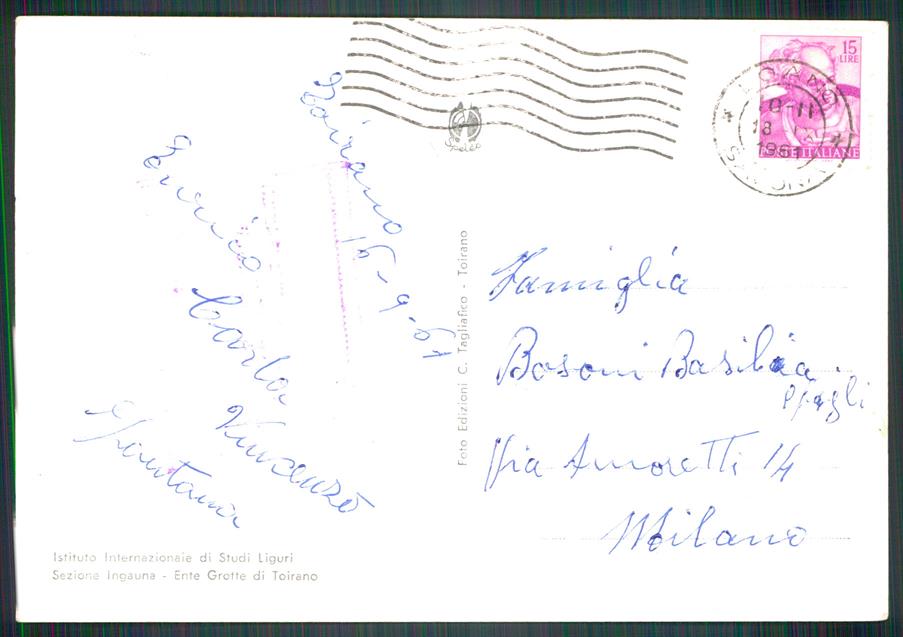 Toirano
16-9-61
Enrico
Carla
Vincenzo
15
LIRE
LOANO
10-11
18
1961
SAVONA
POSTE ITALIANE
Speleo
Foto Edizioni C. Tagliafico - Toirano
Famiglia
Bosoni Basilia
e figli
Via Amoretti 14
Milano
Istituto Internazionale di Studi Liguri
Sezione Ingauna - Ente Grotte di Toirano